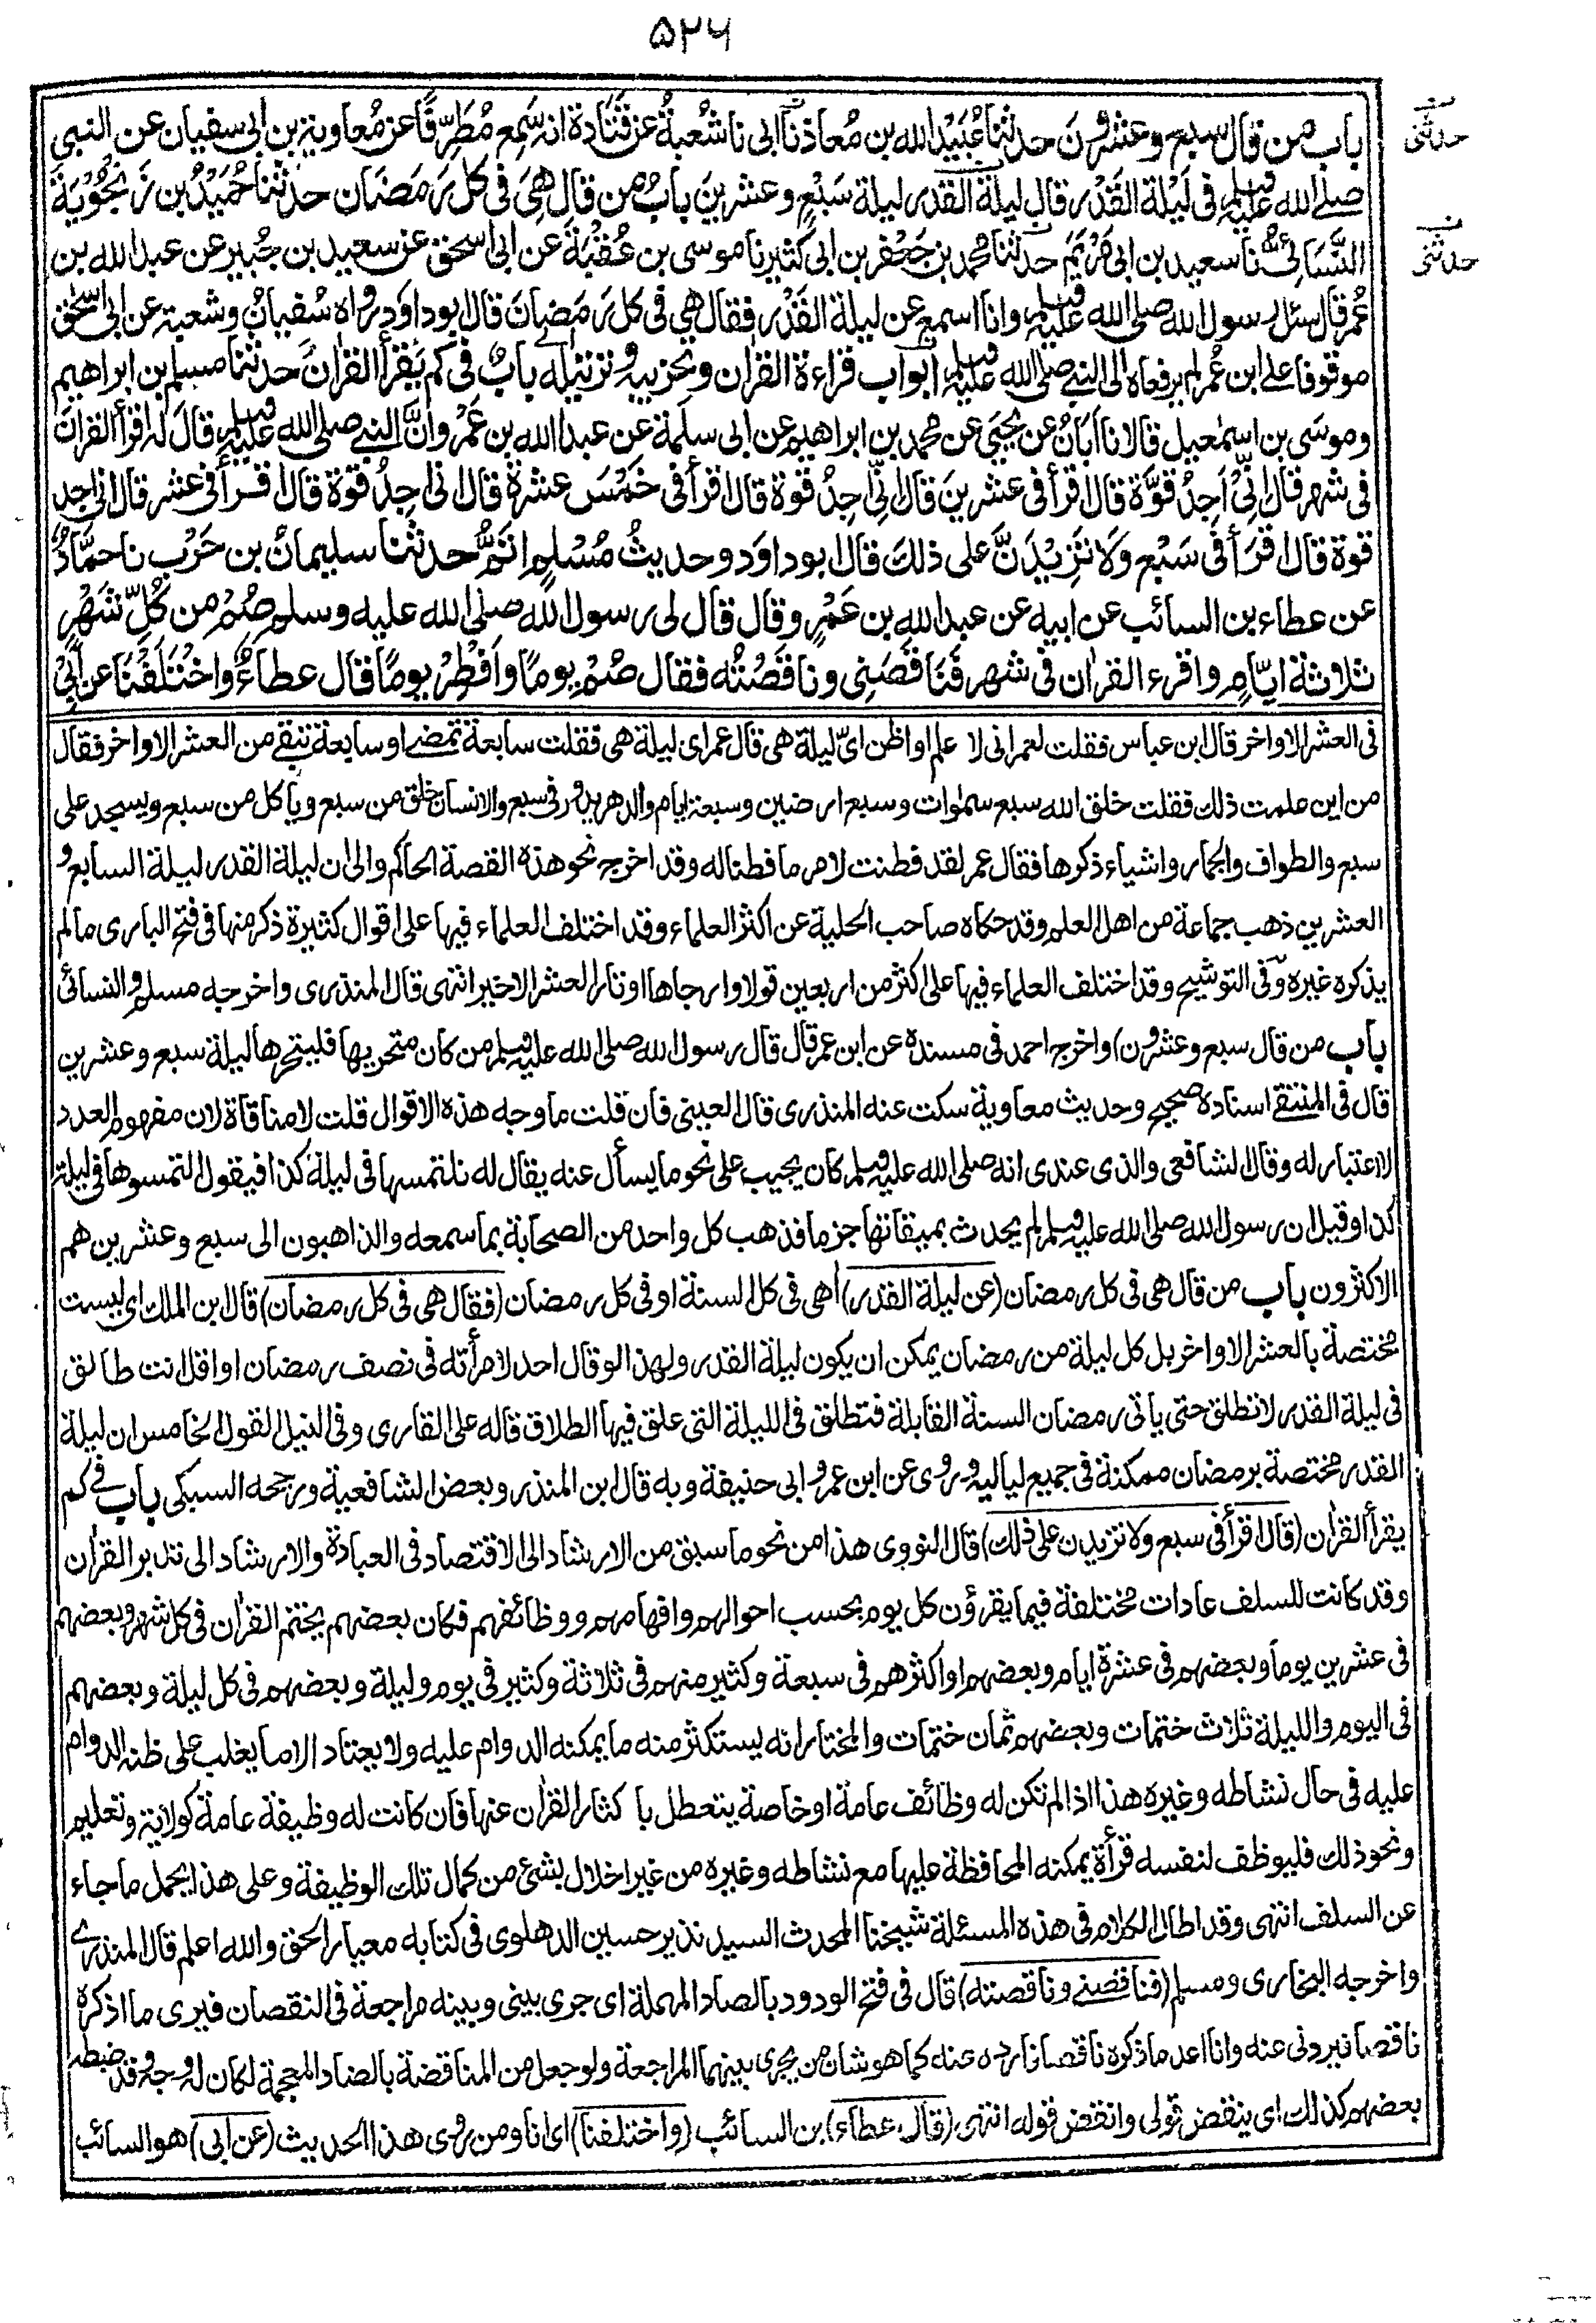 ۵۲۶
باب من قال سبع وعشرون حدثنا عُبَيْدُ الله بن مُعاذ نا ابى نا شُعبةُ عن قَتَادة انه سَمِع مُطَرِّفًا عن مُعاوية بن ابى سفيان عن النبى
صلى الله عليه وسلم فى لَيْلة القَدْر قال ليلة القدر ليلة سَبْعٍ وعشرين بابُ من قال هِىَ فى كل رَمَضَان حدثنا حُمَيْدُ بن زَنْجُوْيَةَ
النَّسَائىُّ نا سعيد بن ابى مَرْيَمَ حدثنا محمد بن جَعْفر بن ابى كثير نا موسى بن عُقْبَةَ عن ابى اسحٰق عن سعيد بن جُبير عن عبد الله بن
عُمر قال سئل رسول الله صلى الله عليه وسلم وانا اسمع عن ليلة القَدْر فقال هى فى كل رَمَضانَ قال ابو داؤد رواه سُفيانُ وشعبة عن ابى اسحٰق
موقوفا على ابن عُمر لم يرفعاه الى النبى صلى الله عليه وسلم ابواب قراءة القراٰن وتحزيبه وترتيله بابٌ فى كم يُقرأ القراٰنُ حدثنا مسلم بن ابراهيم
وموسَى بن اسمٰعيل قالا نا اَبَانُ عن يحيَى عن محمد بن ابراهيم عن ابى سلَمة عن عبد الله بن عَمْرٍو انَّ النبى صلى الله عليه وسلم قَالَ له اقرأ القراٰن
فى شهر قال اِنِّىْ اَجِدُ قوَّة قال اقرأ فى عشرينَ قال انِّى اجِدُ قوة قال اقرأ فى خَمْسَ عشرة قال انى اجِدُ قوة قال اقرأ فى عشر قال انى اجد
قوة قال اقرَأ فى سَبْع ولا تَزِيْدَنَّ على ذلكَ قال ابو داؤد وحديثُ مُسْلِم اتَمُّ حدثنا سليمانُ بن حَرْب نا حمَّادٌ
عن عطاء بن السائب عن ابيه عن عبد الله بن عَمْرٍو قال قال لى رسول الله صلى الله عليه وسلم صُمْ من كُلِّ شَهْرٍ
ثلاثة ايّامٍ واقرء القراٰن فى شهر فَنَاقَصَنِى وناقَصْتُه فقال صُمْ يومًا واَفْطِرْ يومًا قال عطاءٌ واخْتَلَفْنَا عن اَبِىْ
فى العشر الاواخر قال ابن عباس فقلت لعمر انى لا علم او اظن اىّ ليلة هى قال عمر اى ليلة هى فقلت سابعة تمضى او سابعة تبقى من العشر الاواخر فقال
من اين علمت ذلك فقلت خلق الله سبع سمٰوات وسبع ارضين وسبعة ايام والدهر يدور فى سبع والانسان خلق من سبع ويأكل من سبع ويسجد على
سبع والطواف والجمار واشياء ذكرها فقال عمر لقد فطنت لامر ما فطنا له وقد اخرج نحو هذه القصة الحاكم والى ان ليلة القدر ليلة السابع و
العشرين ذهب جماعة من اهل العلم وقد حكاه صاحب الحلية عن اكثر العلماء وقد اختلف العلماء فيها على اقوال كثيرة ذكر منها فى فتح البارى مالم
يذكره غيره وفى التوشيح وقد اختلف العلماء فيها على اكثر من اربعين قولا وارجاها اوتار العشر الاخير انتهى قال المنذرى واخرجه مسلم والنسائى
باب من قال سبع وعشرون) واخرج احمد فى مسنده عن ابن عمر قال قال رسول الله صلى الله عليه وسلم من كان متحريها فليتحرها ليلة سبع وعشرين
قال فى المنتقى اسناده صحيح وحديث معاوية سكت عنه المنذرى قال العينى فان قلت ما وجه هذه الاقوال قلت لا منافاة لان مفهوم العدد
لا اعتبار له وقال الشافعى والذى عندى انه صلى الله عليه وسلم كان يجيب على نحو ما يسأل عنه يقال له نلتمسها فى ليلة كذا فيقول التمسوها فى ليلة
كذا وقيل ان رسول الله صلى الله عليه وسلم لم يحدث بميقاتها جزما فذهب كل واحد من الصحابة بما سمعه والذاهبون الى سبع وعشرين هم
الاكثرون باب من قال هى فى كل رمضان (عن ليلة القدر) أهى فى كل السنة او فى كل رمضان (فقال هى فى كل رمضان) قال ابن الملك اى ليست
مختصة بالعشر الاواخر بل كل ليلة من رمضان يمكن ان يكون ليلة القدر ولهذا لو قال احد لامرأته فى نصف رمضان او اقل انت طالق
فى ليلة القدر لا تطلق حتى ياتى رمضان السنة القابلة فتطلق فى الليلة التى علق فيها الطلاق قاله على القارى وفى النيل القول الخامس ان ليلة
القدر مختصة برمضان ممكنة فى جميع لياليه وروى عن ابن عمر وابى حنيفة وبه قال ابن المنذر وبعض الشافعية ورجحه السبكى باب فى كم
يقرأ القراٰن (قال اقرأ فى سبع ولا تزيدن على ذلك) قال النووى هذا من نحو ما سبق من الارشاد الى الاقتصاد فى العبادة والارشاد الى تدبر القراٰن
وقد كانت للسلف عادات مختلفة فيما يقرؤن كل يوم بحسب احوالهم وافهامهم ووظائفهم فكان بعضهم يختم القراٰن فى كل شهر وبعضهم
فى عشرين يوما وبعضهم فى عشرة ايام وبعضهم او اكثرهم فى سبعة وكثير منهم فى ثلاثة وكثير فى يوم وليلة وبعضهم فى كل ليلة وبعضهم
فى اليوم والليلة ثلاث ختمات وبعضهم ثمان ختمات والمختار انه يستكثر منه ما يمكنه الدوام عليه ولا يعتاد الا ما يغلب على ظنه الدوام
عليه فى حال نشاطه وغيره هذا اذا لم تكن له وظائف عامة او خاصة يتعطل باكثار القراٰن عنها فان كانت له وظيفة عامة كولاية وتعليم
ونحو ذلك فليوظف لنفسه قرأة يمكنه المحافظة عليها مع نشاطه وغيره من غير اخلال بشئ من كمال تلك الوظيفة وعلى هذا يحمل ما جاء
عن السلف انتهى وقد اطال الكلام فى هذه المسئلة شيخنا المحدث السيد نذير حسين الدهلوى فى كتابه معيار الحق والله اعلم قال المنذرى
واخرجه البخارى ومسلم (فناقصنى وناقصته) قال فى فتح الودود بالصاد المهملة اى جرى بينى وبينه مراجعة فى النقصان فيرى ما اذكره
ناقصا فيردنى عنه وانا اعد ما ذكره ناقصا فارده عنه كما هو شان من يجرى بينهما المراجعة ولو جعل من المناقضة بالضاد المعجمة لكان له وجه وقد ضبطه
بعضهم كذلك اى ينقض قولى وانقض قوله انتهى (قال عطاء) بن السائب (واختلفنا) اى انا ومن روى هذا الحديث (عن ابى) هو السائب
حدثنى
حدثنى